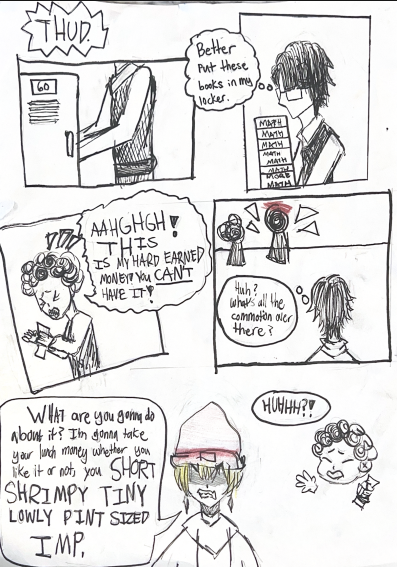 THUD.
60
Better
Put these
books in my
locker.
MATH
MATH
MATH
MATH
MATH
MATH
MORE
MATH
AAHGHGH!
THIS
IS MY HARD EARNED
MONEY! YOU CAN'T
HAVE IT!
Huh?
What's all the
commotion over
there?
WHAT are you gonna do
about it? I'm gonna take
your lunch money whether you
like it or not, you SHORT
SHRIMPY TINY
LOWLY PINT SIZED
IMP.
HUHHH?!